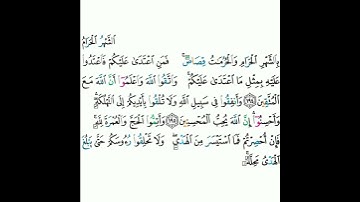 الشَّهْرُ الْحَرَامُ
بِالشَّهْرِ الْحَرَامِ وَالْحُرُمَٰتُ قِصَاصٌ ۚ فَمَنِ اعْتَدَىٰ عَلَيْكُمْ فَاعْتَدُوا
عَلَيْهِ بِمِثْلِ مَا اعْتَدَىٰ عَلَيْكُمْ ۚ وَاتَّقُوا اللَّهَ وَاعْلَمُوٓا أَنَّ اللَّهَ مَعَ
الْمُتَّقِينَ ﴿١٩٤﴾ وَأَنفِقُوا فِى سَبِيلِ اللَّهِ وَلَا تُلْقُوا بِأَيْدِيكُمْ إِلَى التَّهْلُكَةِ ۛ
وَأَحْسِنُوٓا ۛ إِنَّ اللَّهَ يُحِبُّ الْمُحْسِنِينَ ﴿١٩٥﴾ وَأَتِمُّوا الْحَجَّ وَالْعُمْرَةَ لِلَّهِ ۚ
فَإِنْ أُحْصِرْتُمْ فَمَا اسْتَيْسَرَ مِنَ الْهَدْىِ ۖ وَلَا تَحْلِقُوا رُءُوسَكُمْ حَتَّىٰ يَبْلُغَ
الْهَدْىُ مَحِلَّهُۥ ۚ